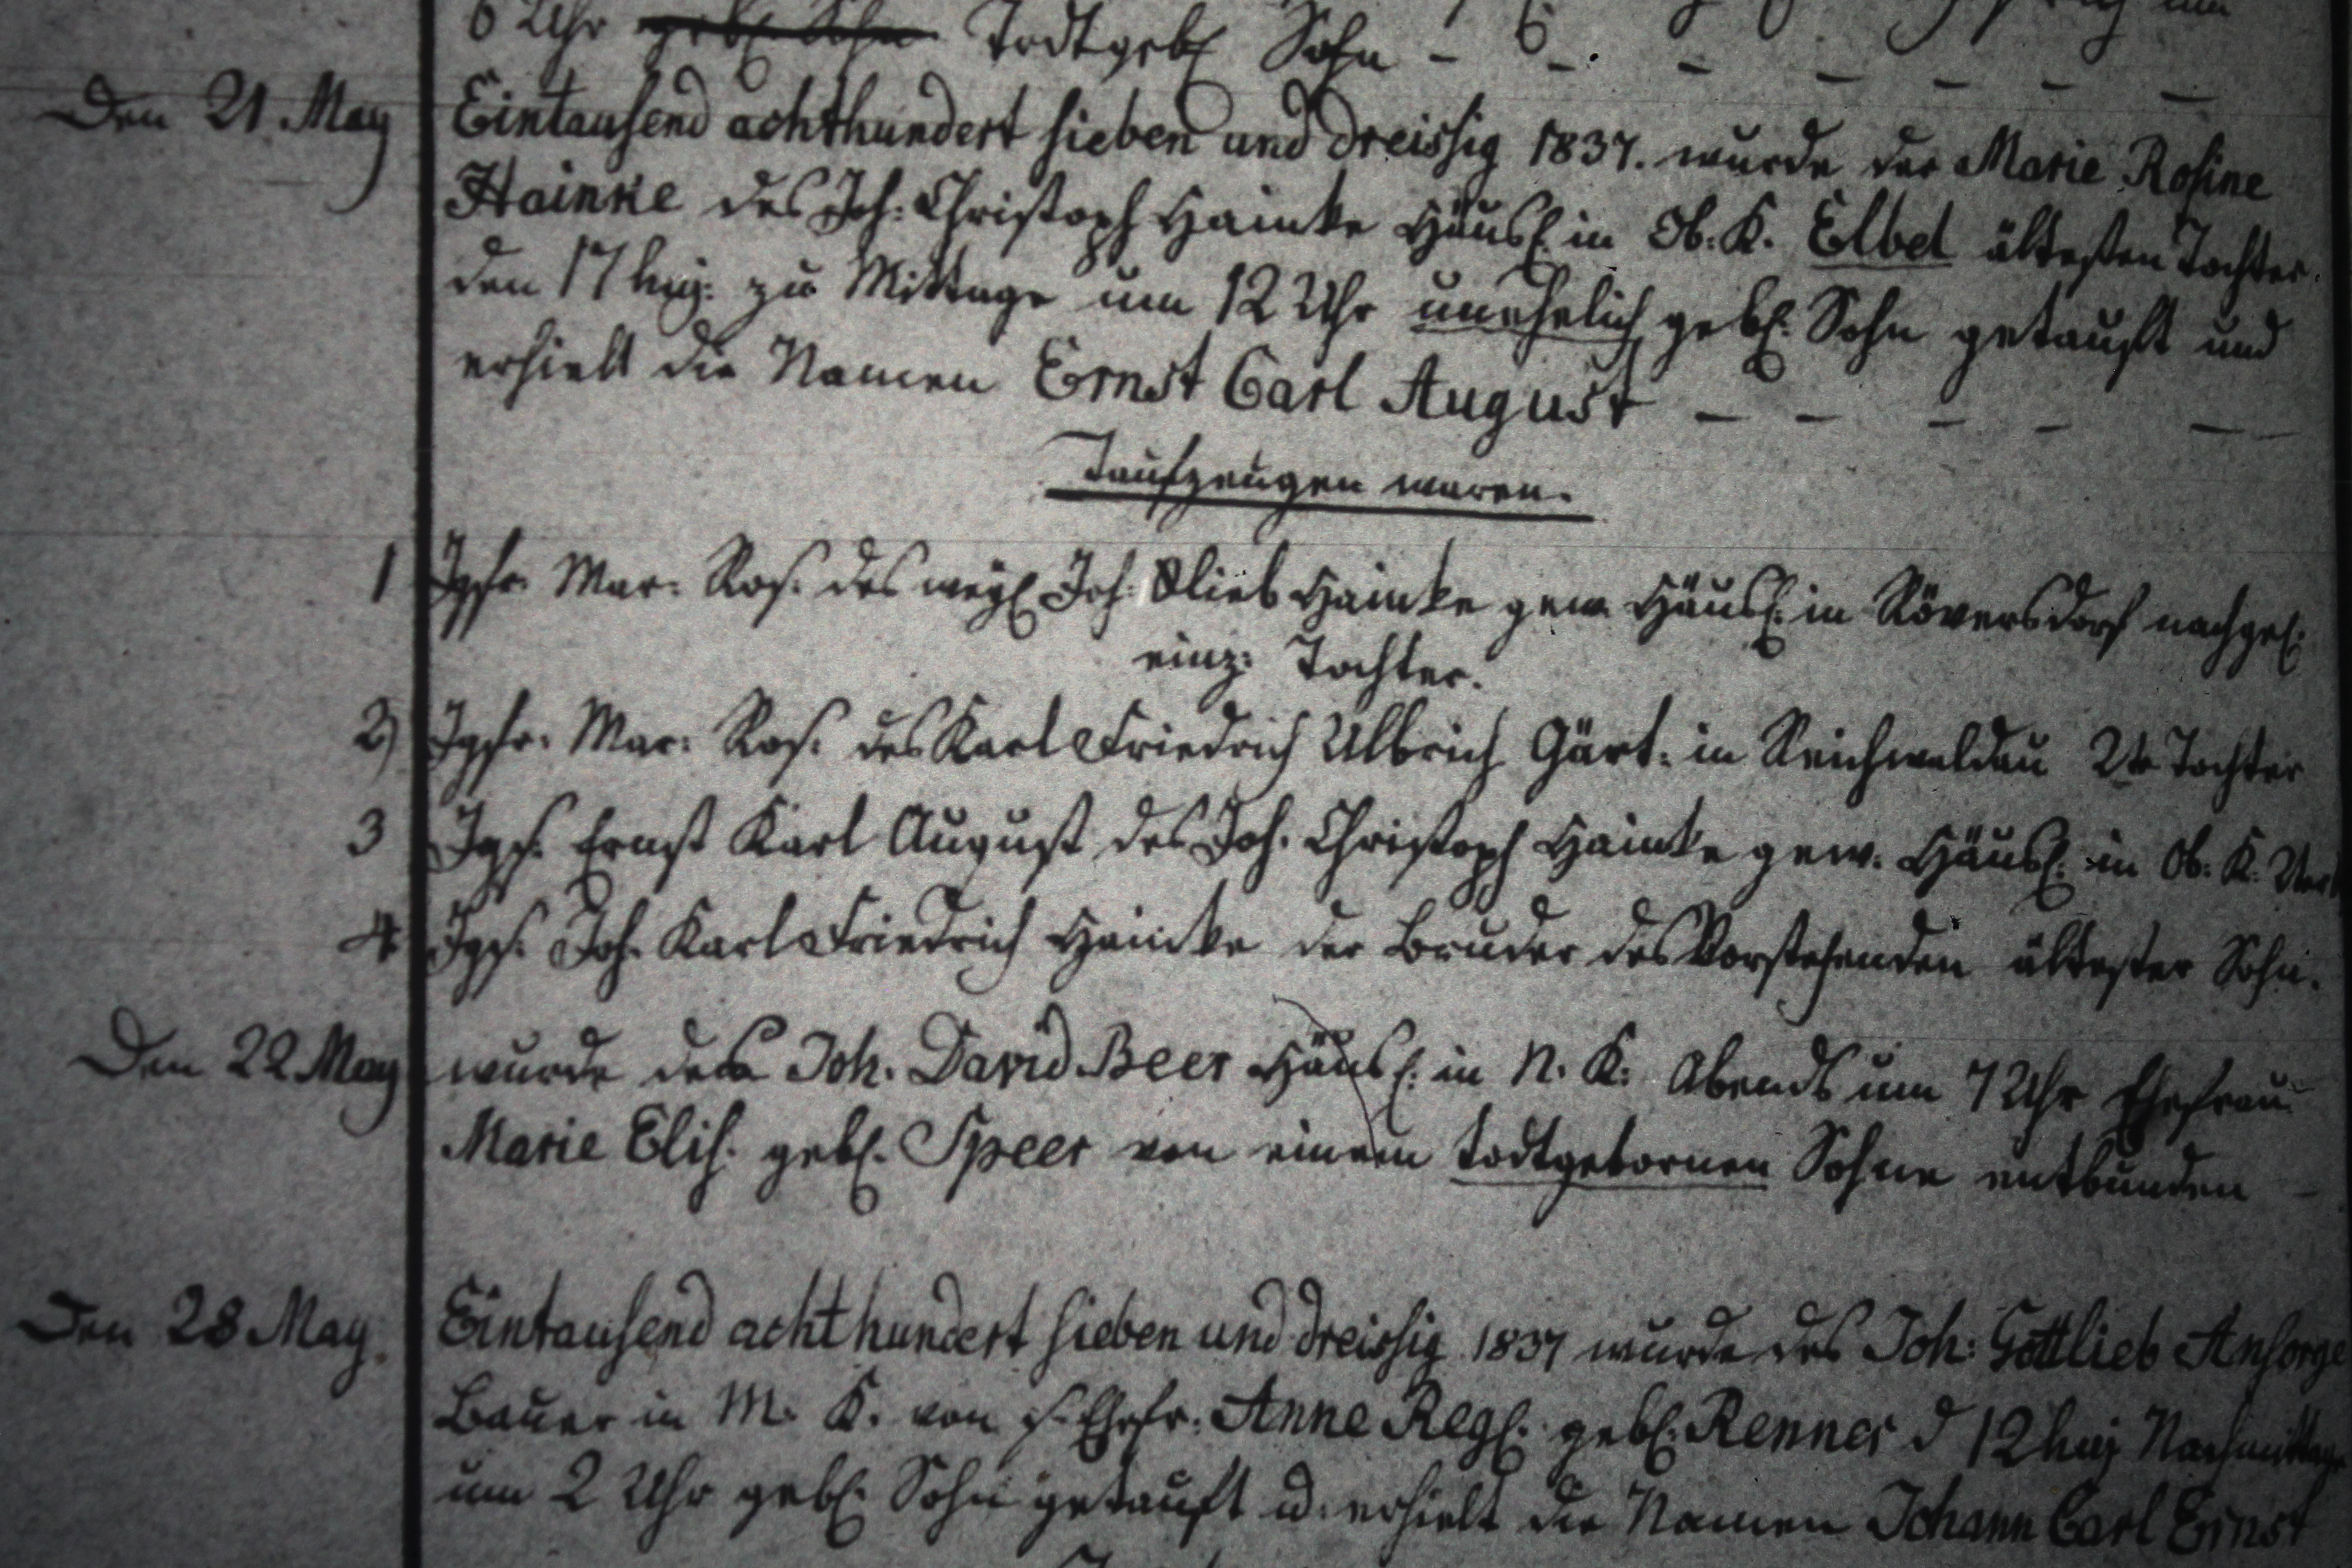 6 Uhr gebl Sohn Todtgebl Sohn - - - - - - - -
Den 21. May Eintausend achthundert sieben und dreissig 1837. wurde der Marie Rosine
Hainke des Joh: Christoph Hainke Häusl: in Ob: K. Elbel ältesten Tochter.
den 17 huj: zu Mittage um 12 Uhr unehelich gebl: Sohn getauft und
erhielt die Namen Ernst Carl August - - - - -
Taufzeugen waren.
1 Jgfr. Mar: Ros. des weyl Joh: Glieb Hainke gew Häusl: in Röversdorf nachgel:
einz: Tochter.
2) Jgfr. Mar: Ros: des Karl Friedrich Ulbrich Gärt: in Reichwaldau 2te Tochter
3 Jgs. Ernst Karl August des Joh. Christoph Hainke gew. Häusl: in Ob: K.
4 Jgs. Joh. Karl Friedrich Hainke der Bruder des Vorstehenden ältester Sohn.
Den 22 May wurde des Joh. David Beer Häusl: in N. K: Abends um 7 Uhr Ehefrau
Marie Elis. gebl. Speer von einem todtgebornen Sohne entbunden -
Den 28 May. Eintausend achthundert sieben und dreissig 1837 wurde des Joh: Gottlieb Ansorge
Bauer in M. K. von s. Ehefr: Anne Regl: gebl: Renner d 12 huj Nachmittag
um 2 Uhr gebl: Sohn getauft u. erhielt die Namen Johann Carl Ernst